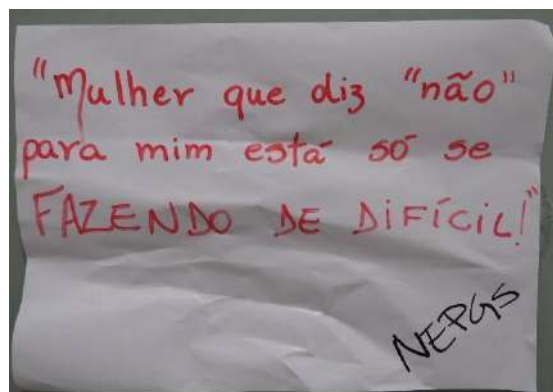 "Mulher que diz "não"
para mim está só se
FAZENDO DE DIFÍCIL!"
NEPGS